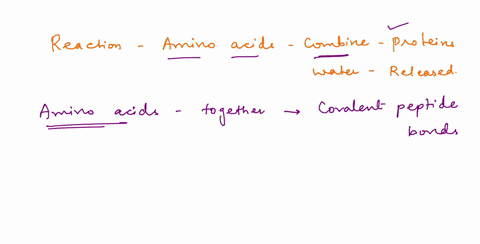 Reaction - Amino acids - Combine - Proteins
water - Released.
Amino acids - together → Covalent peptide
bonds